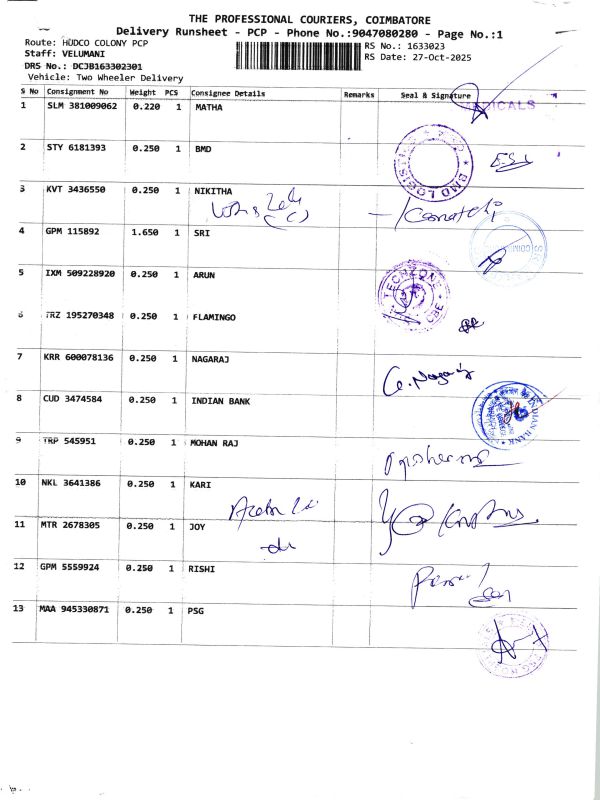 THE PROFESSIONAL COURIERS, COIMBATORE
Delivery Runsheet - PCP - Phone No.:9047080280 - Page No.:1
Route: HUDCO COLONY PCP
Staff: VELUMANI
DRS No.: DCJB163302301
Vehicle: Two Wheeler Delivery
RS No.: 1633023
RS Date: 27-Oct-2025
S No Consignment No Weight PCS Consignee Details Remarks Seal & Signature
1 SLM 381009062 0.220 1 MATHA
2 STY 6181393 0.250 1 BMD
BMD LOGISTICS
3 KVT 3436550 0.250 1 NIKITHA
4 GPM 115892 1.650 1 SRI
5 IXM 509228920 0.250 1 ARUN
TECHZONE
CBE
6 TRZ 195270348 0.250 1 FLAMINGO
7 KRR 600078136 0.250 1 NAGARAJ
G. Nagaraj
8 CUD 3474584 0.250 1 INDIAN BANK
INDIAN BANK
9 TRP 545951 0.250 1 MOHAN RAJ
10 NKL 3641386 0.250 1 KARI
11 MTR 2678305 0.250 1 JOY
12 GPM 5559924 0.250 1 RISHI
13 MAA 945330871 0.250 1 PSG